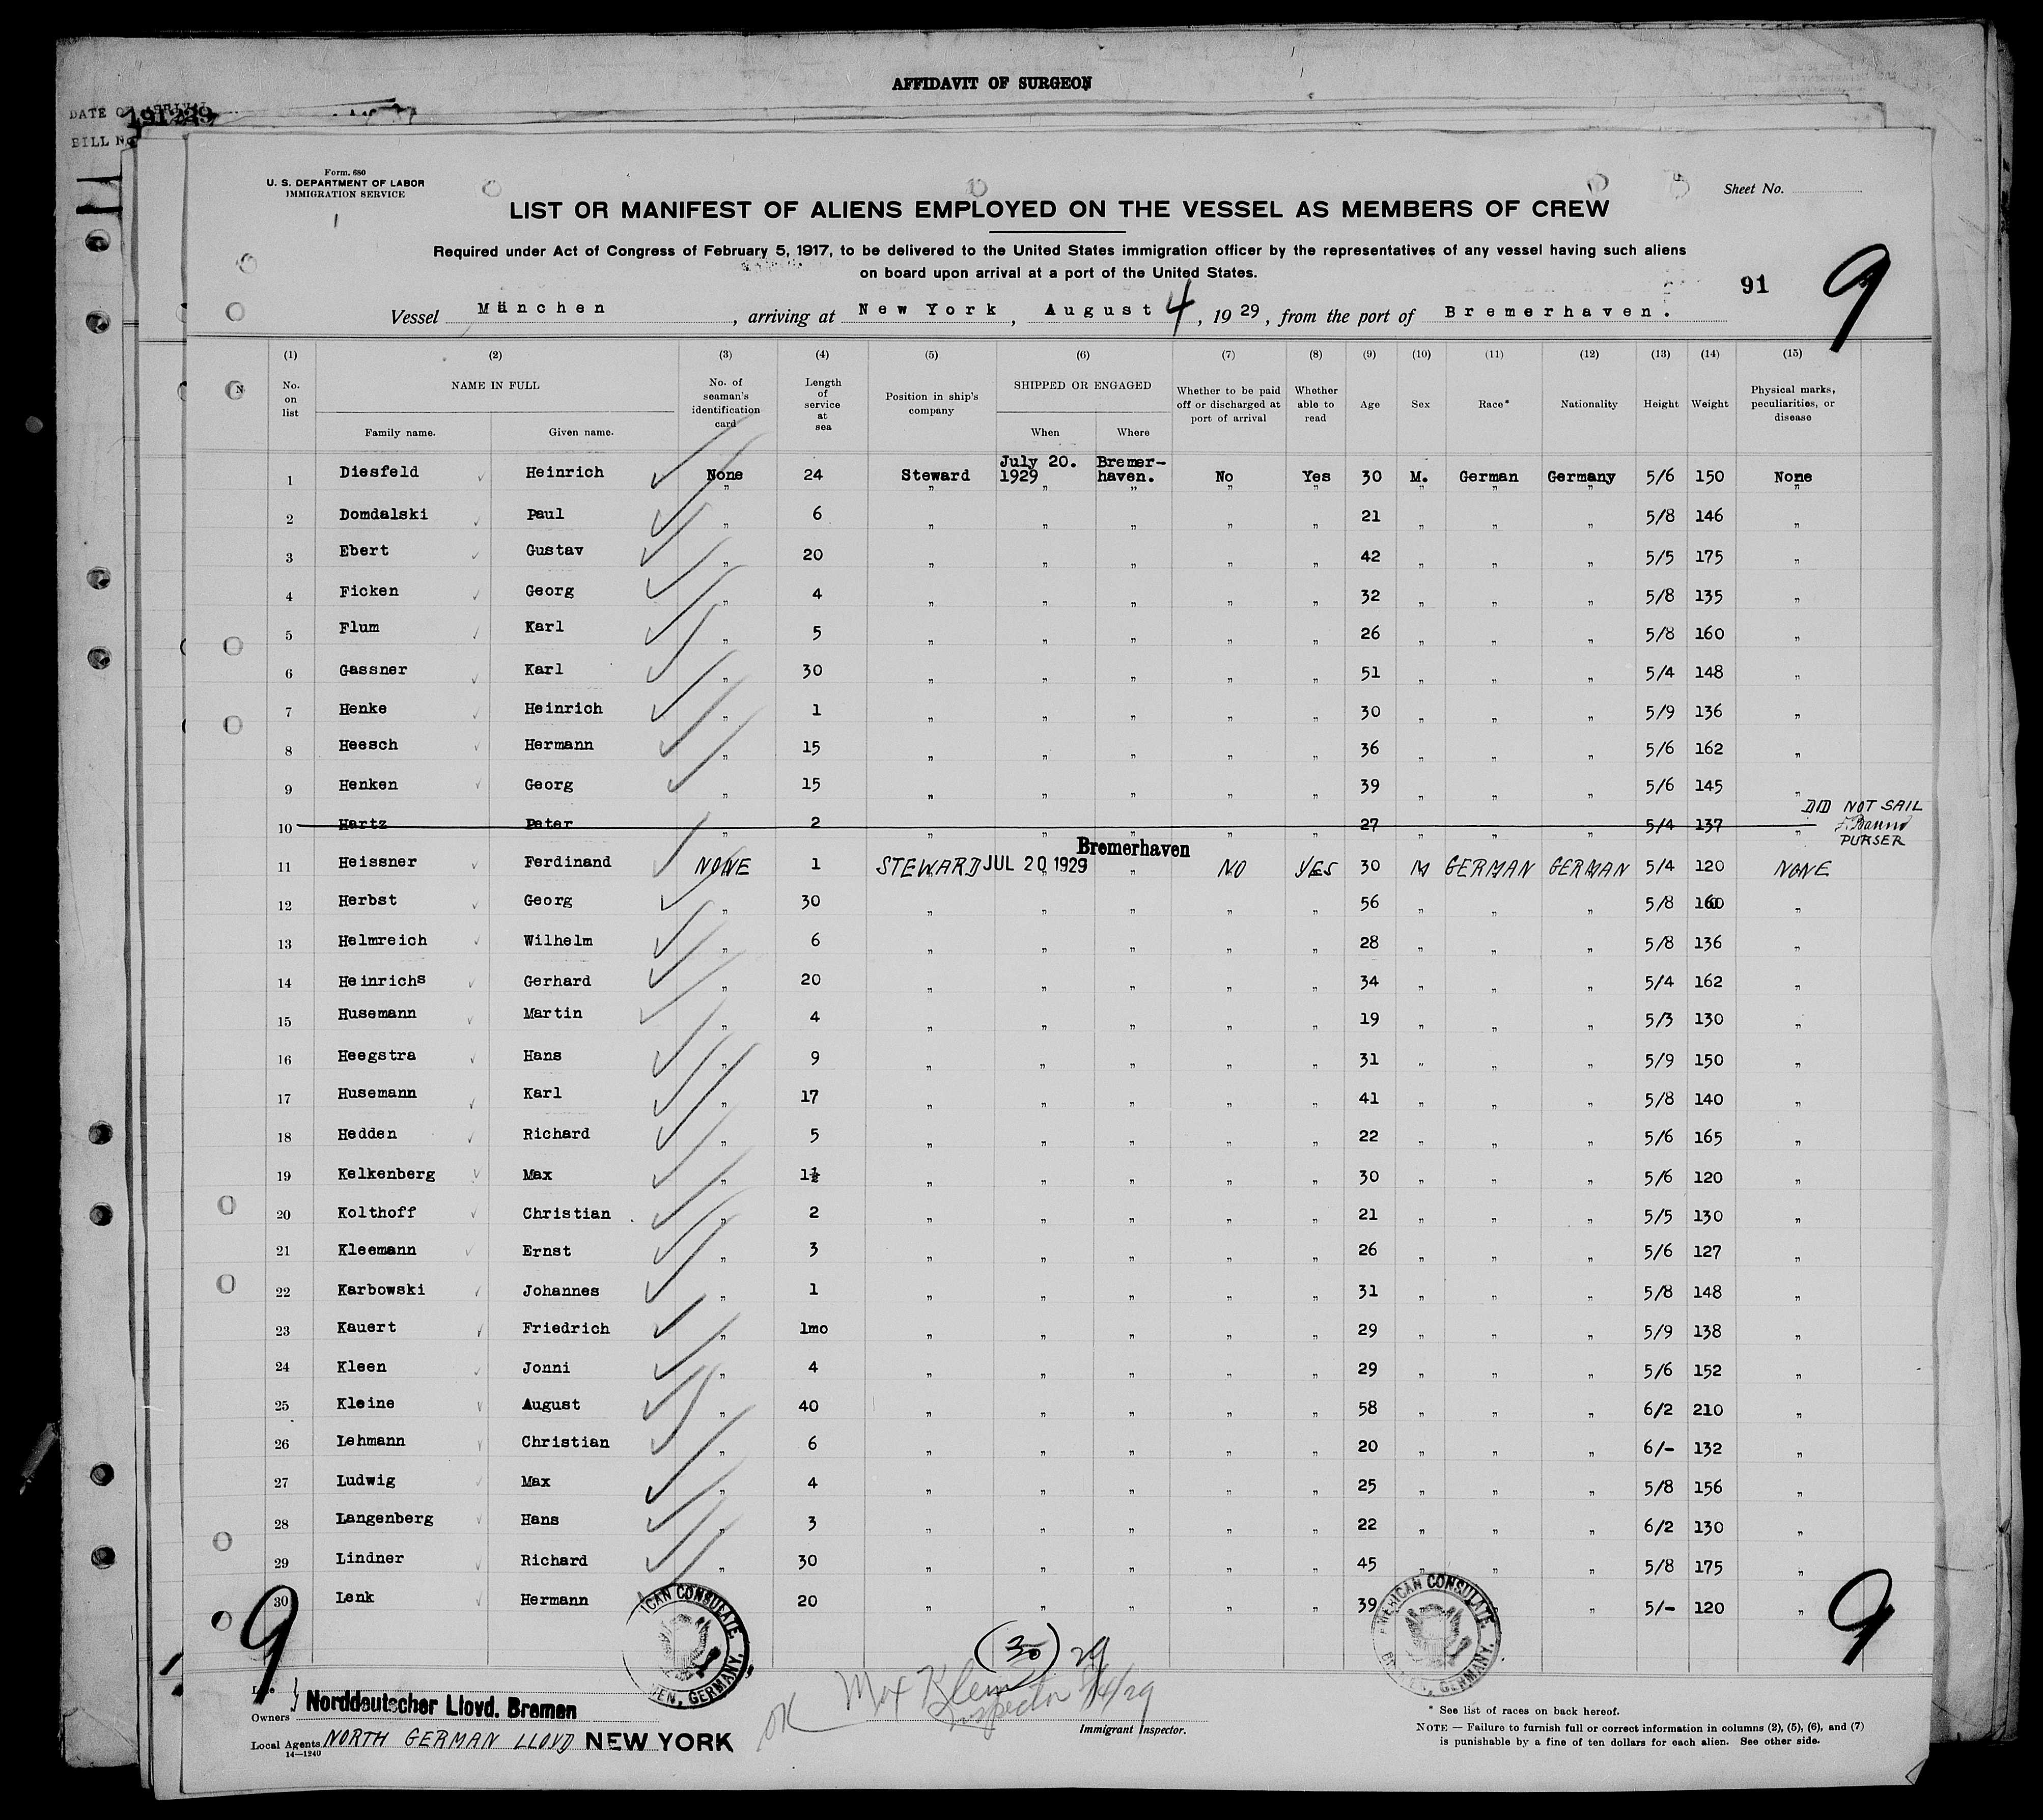 AFFIDAVIT OF SURGEON
DATE OF ARRIVAL
BILL No
Form. 680
U. S. DEPARTMENT OF LABOR
IMMIGRATION SERVICE
Sheet No.
LIST OR MANIFEST OF ALIENS EMPLOYED ON THE VESSEL AS MEMBERS OF CREW
Required under Act of Congress of February 5, 1917, to be delivered to the United States immigration officer by the representatives of any vessel having such aliens
on board upon arrival at a port of the United States.
91 9
Vessel Mänchen, arriving at New York, August 4, 1929, from the port of Bremerhaven.
(1) (2) (3) (4) (5) (6) (7) (8) (9) (10) (11) (12) (13) (14) (15)
No. on list NAME IN FULL Family name. Given name. No. of seaman's identification card Length of service at sea Position in ship's company SHIPPED OR ENGAGED When Where Whether to be paid off or discharged at port of arrival Whether able to read Age Sex Race* Nationality Height Weight Physical marks, peculiarities, or disease
1 Diesfeld Heinrich None 24 Steward July 20. 1929 Bremer-haven. No Yes 30 M. German Germany 5/6 150 None
2 Domdalski Paul " 6 " " " " " 21 " " " 5/8 146 "
3 Ebert Gustav " 20 " " " " " 42 " " " 5/5 175 "
4 Ficken Georg " 4 " " " " " 32 " " " 5/8 135 "
5 Flum Karl " 5 " " " " " 26 " " " 5/8 160 "
6 Gassner Karl " 30 " " " " " 51 " " " 5/4 148 "
7 Henke Heinrich " 1 " " " " " 30 " " " 5/9 136 "
8 Heesch Hermann " 15 " " " " " 36 " " " 5/6 162 "
9 Henken Georg " 15 " " " " " 39 " " " 5/6 145 "
10 Hartz Peter " 2 " " " " " 27 " " " 5/4 137 " DID NOT SAIL
PURSER
11 Heissner Ferdinand NONE 1 STEWARD JUL 20 1929 Bremerhaven NO YES 30 M GERMAN GERMAN 5/4 120 NONE
12 Herbst Georg " 30 " " " " " 56 " " " 5/8 160 "
13 Helmreich Wilhelm " 6 " " " " " 28 " " " 5/8 136 "
14 Heinrichs Gerhard " 20 " " " " " 34 " " " 5/4 162 "
15 Husemann Martin " 4 " " " " " 19 " " " 5/3 130 "
16 Heegstra Hans " 9 " " " " " 31 " " " 5/9 150 "
17 Husemann Karl " 17 " " " " " 41 " " " 5/8 140 "
18 Hedden Richard " 5 " " " " " 22 " " " 5/6 165 "
19 Kelkenberg Max " 1½ " " " " " 30 " " " 5/6 120 "
20 Kolthoff Christian " 2 " " " " " 21 " " " 5/5 130 "
21 Kleemann Ernst " 3 " " " " " 26 " " " 5/6 127 "
22 Karbowski Johannes " 1 " " " " " 31 " " " 5/8 148 "
23 Kauert Friedrich " 1mo " " " " " 29 " " " 5/9 138 "
24 Kleen Jonni " 4 " " " " " 29 " " " 5/6 152 "
25 Kleine August " 40 " " " " " 58 " " " 6/2 210 "
26 Lehmann Christian " 6 " " " " " 20 " " " 6/- 132 "
27 Ludwig Max " 4 " " " " " 25 " " " 5/8 156 "
28 Langenberg Hans " 3 " " " " " 22 " " " 6/2 130 "
29 Lindner Richard " 30 " " " " " 45 " " " 5/8 175 "
30 Lenk Hermann " 20 " " " " " 39 " " " 5/- 120 "
9 (30) 29 9
AMERICAN CONSULATE GERMANY.
Owners Norddeutscher Lloyd. Bremen
OK Max Klein Inspector 8/4/29
Immigrant Inspector.
Local Agents NORTH GERMAN LLOYD NEW YORK
14—1240
* See list of races on back hereof.
NOTE — Failure to furnish full or correct information in columns (2), (5), (6), and (7)
is punishable by a fine of ten dollars for each alien. See other side.